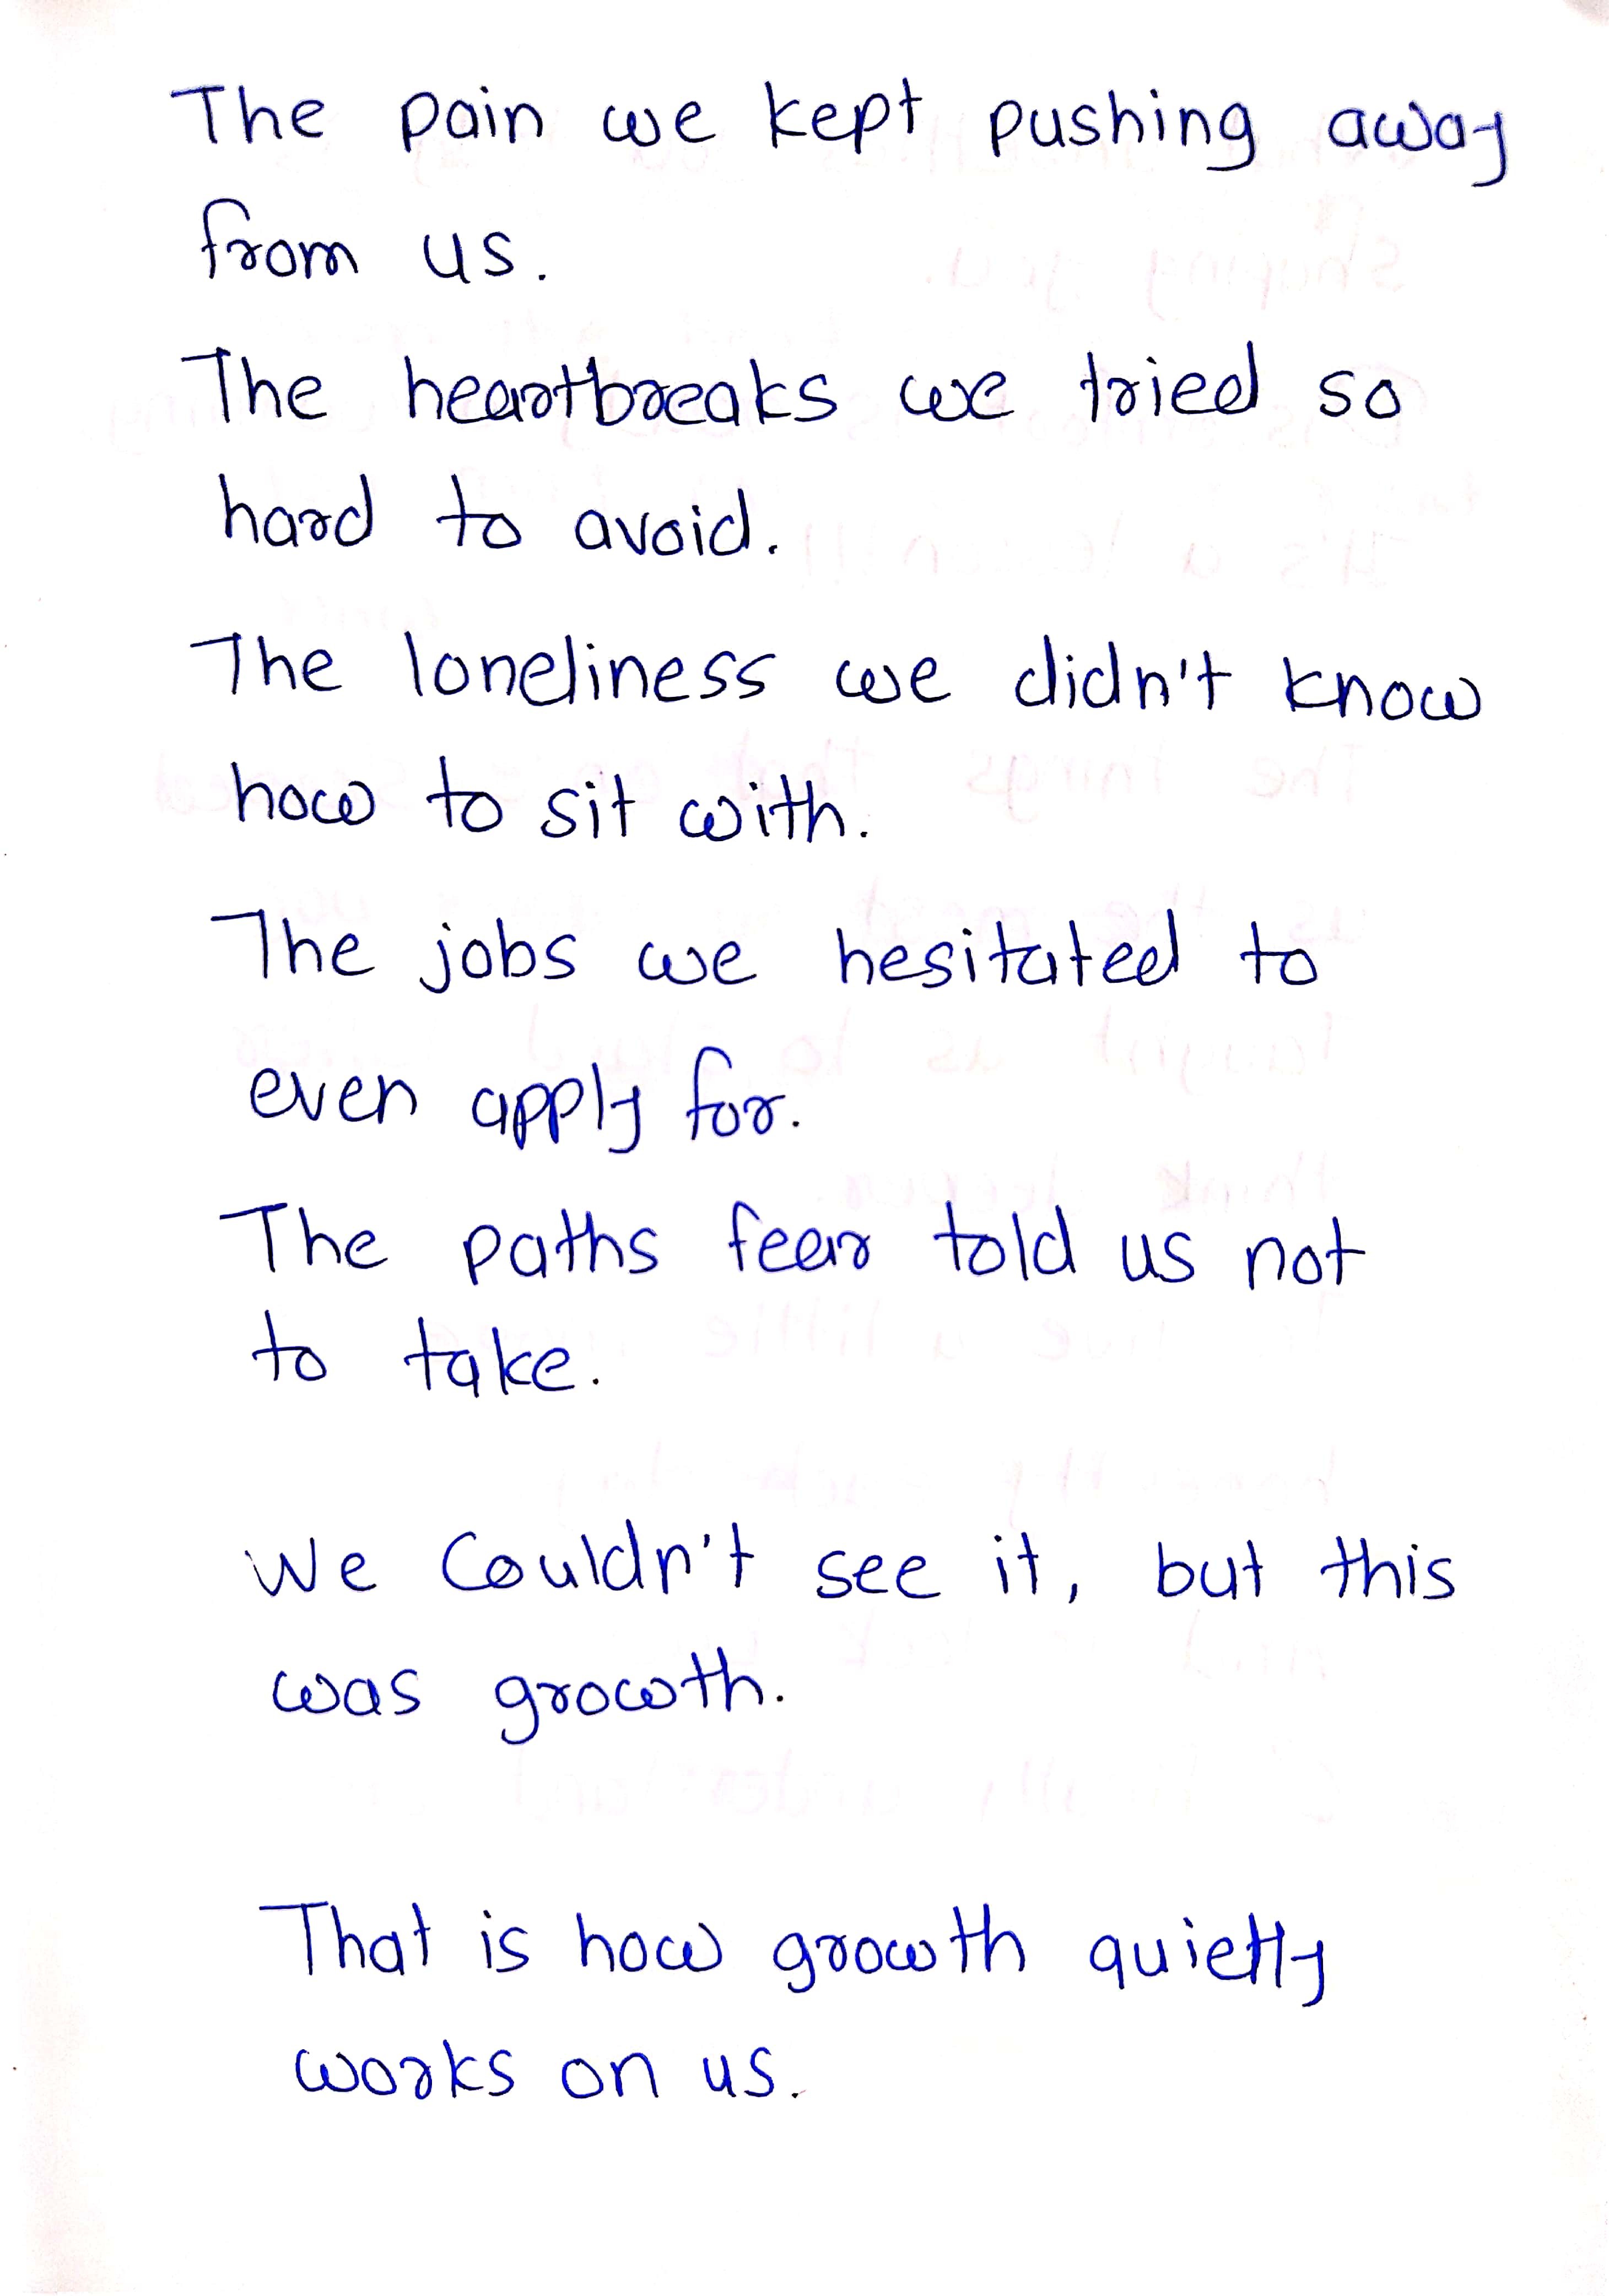 The pain we kept pushing away
from us.
The heartbreaks we tried so
hard to avoid.
The loneliness we didn't know
how to sit with.
The jobs we hesitated to
even apply for.
The paths fear told us not
to take.
We Couldn't see it, but this
was growth.
That is how growth quietly
works on us.